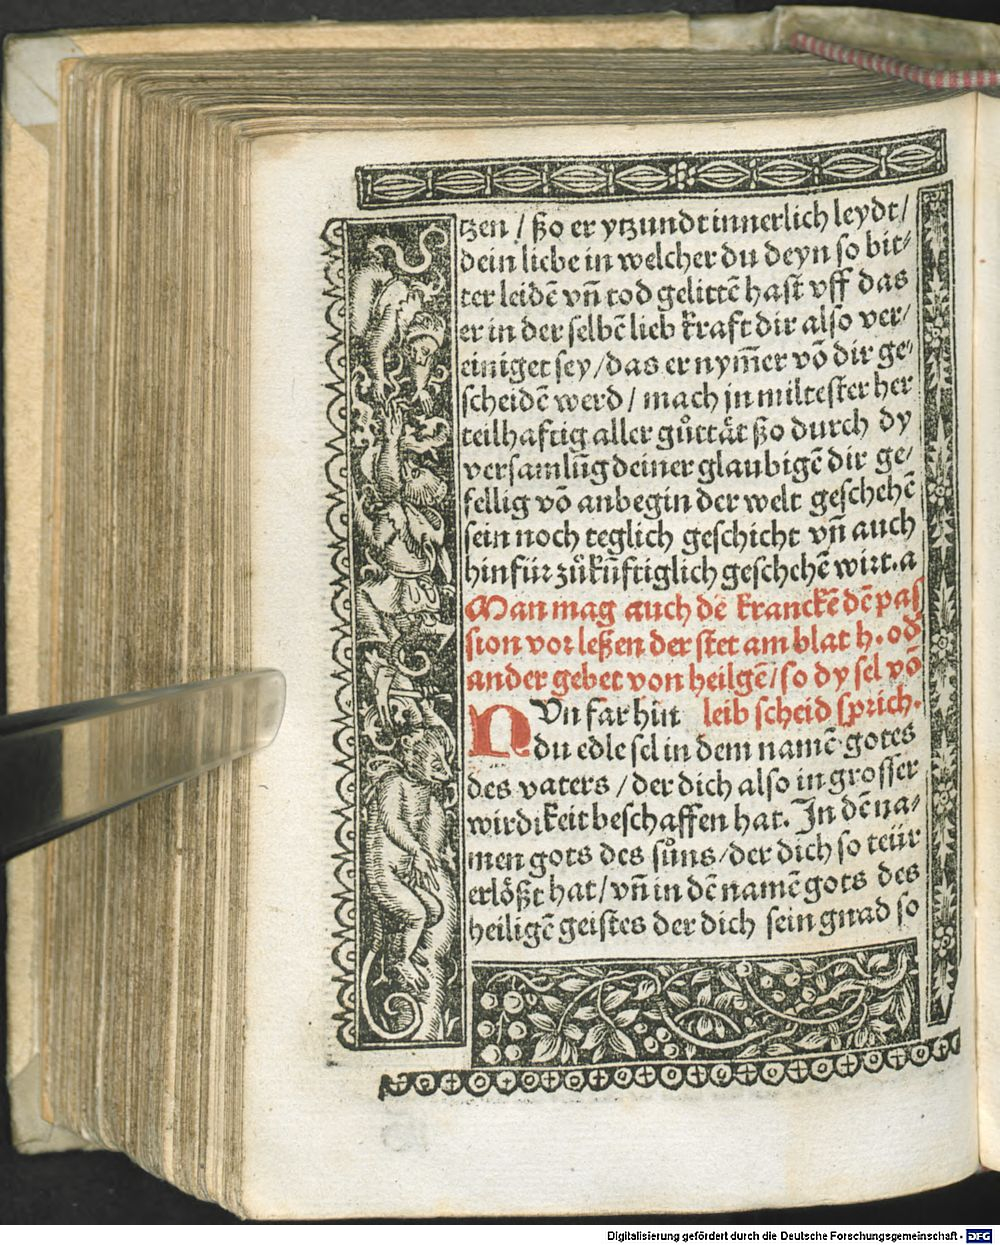 tzen / ßo er ytzundt innerlich leydt/
dein liebe in welcher du deyn so bit⸗
ter leidē vn̄ tod gelittē hast vff das
er in der selbē lieb kraft dir also ver/
einiget sey/das er nym̄er vō dir ge⸗
scheidē werd / mach jn miltester her
teilhaftig aller gůttät ßo durch dy
versamlūg deiner glaubigē dir ge/
fellig vō anbegin der welt geschehē
sein noch teglich geschicht vn̄ auch
hinfür zůkūftiglich geschehē wirt.a
Man mag auch dē kranckē dē pas
sion vor leßen der stet am blat h. od̄
ander gebet von heilgē/so dy sel vō
NVn far hin leib scheid sprich.
du edle sel in dem namē gotes
des vaters / der dich also in grosser
wirdikeit beschaffen hat. In dē na⸗
men gots des sůns/der dich so teür
erlößt hat/vn̄ in dē namē gots des
heiligē geistes der dich sein gnad so
Digitalisierung gefördert durch die Deutsche Forschungsgemeinschaft - DFG